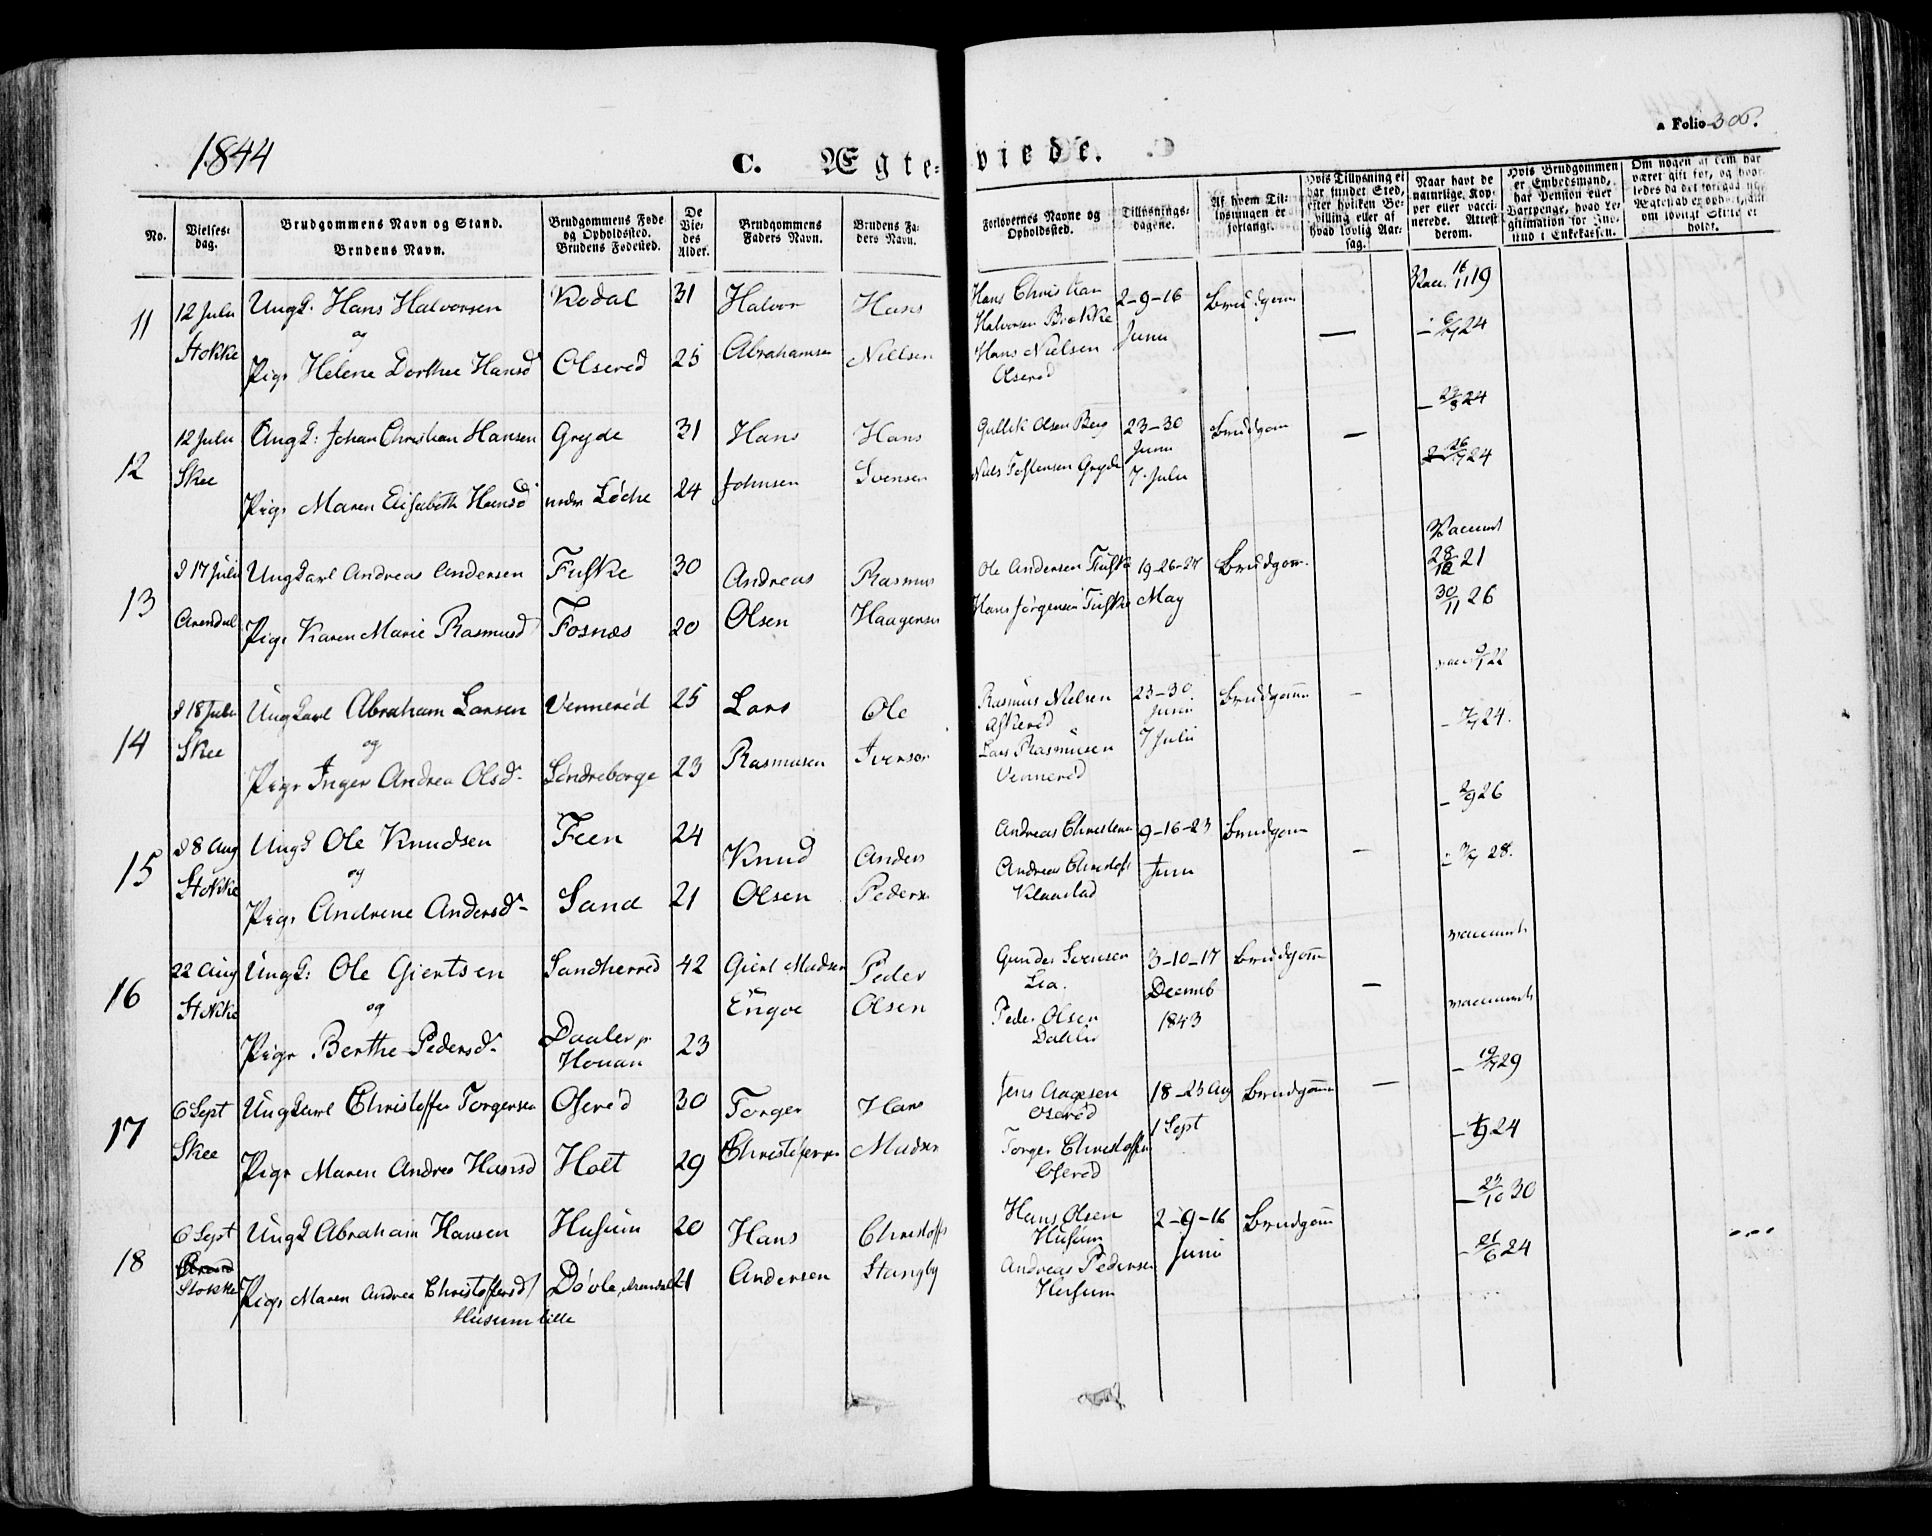 1844
C. Ægte=viede.
Folio 306.
No.
Vielses-
dag.
Brudgommens Navn og Stand.
Brudens Navn.
Brudgommens Føde
og Opholdssted.
Brudens Fødested.
De
Vie-
des
Alder.
Brudgommens
Faders Navn.
Brudens Fa-
ders Navn.
Forlovernes Navne og
Opholdssted.
Tillysnings-
dagene.
Af hvem Til-
lysningen er
forlangt.
Hvis Tillysning ei
har fundet Sted,
efter hvilken Be-
villing eller af
hvad lovlig Aar-
sag.
Naar havt de
naturlige Kop-
per eller vacci-
nerede. Attest
derom.
Hvis Brudgommen
er Embedsmand,
har Pension eller
Vartpenge, hvad Le-
gitimation for Ind-
skud i Enkekassen.
Om nogen af dem har
været gift før, og hvor-
ledes da det forrige
Ægteskab er ophævet, samt
om lovligt Skifte er
holdt.
11
12 Juli
Stokke
Ungk. Hans Halvorsen
og
Pige Helene Dorthee Hansd
Kodal
Olserød
31
25
Halvor
Abrahamsen
Hans
Nielsen
Hans Christian
Halvorsen Brække
Hans Nielsen
Olserød
2-9-16
Juni
Brudgom
—
Vacc. 16/11 19
24
12
12 Juli
Skee
Ungk: Johan Christian Hansen
Pige Maren Elisabeth Hansd
Gryde
nedre Løche
31
24
Hans
Johnsen
Hans
Svensen
Gullik Olsen Berg
Niels Tostensen Gryde
23-30
Juni
7. Juli
Brudgom
—
24
24
13
d 17 Juli
Arendal
Ungkarl Andreas Andersen
Pige Karen Marie Rasmusd
Fuske
Fosnæs
30
20
Andreas
Olsen
Rasmus
Haagensen
Ole Andersen Fuske
Hans Jørgensen Fuske
19-26-27
May
Brudgom
Vaccinert
28/12 21
30/11 26
14
d 18 Juli
Skee
Ungkarl Abraham Larsen
og
Pige Inger Andrea Olsd
Vennerød
Søndreborge
25
23
Lars
Rasmusen
Ole
Iversen
Rasmus Nielsen
Askerød
Lars Rasmusen
Vennerød
23-30
Juni
7 Juli
Brudgom
—
vacc. 22
24.
15
d 8 Aug
Stokke
Ungk Ole Knudsen
og
Pige Andrene Andersd
Feen
Sand
24
21
Knud
Olsen
Anders
Pedersen
Andreas Christensen
Andreas Christofs
Klaastad
9-16-23
Juni
Brudgom
—
2/9 26
28.
16
22 Aug
Stokke
Ungk: Ole Giertsen
og
Pige Berthe Pedersd
Sandherred
Daaler p.
Houan
42
23
Giert Madsen
Engøe
Peder
Olsen
Gunder Svensen
Lia.
Peder Olsen
Dahler
3-10-17
Decemb
1843
Brudgom
—
vaccinert
vaccinert
17
6 Sept
Skee
Ungkarl Christoffer Torgersen
Pige Maren Andrea Hansd
Oserød
Holt
30
29
Torger
Christofersen
Hans
Madsen
Jens Aagesen
Oserød
Torger Christoffersen
Oserød
18-25 Aug
1 Sept
Brudgom
—
29
24
18
6 Sept
Stokke
Ungk Abraham Hansen
Pige Maren Andrea Christoffersd
Husum lille
Husum
Døvle, Arendal
20
21
Hans
Andersen
Christoffer
Stangby
Hans Olsen
Husum
Andreas Pedersen
Husum
2-9-16
Juni
Brudgom
23/10 30
21/6 24